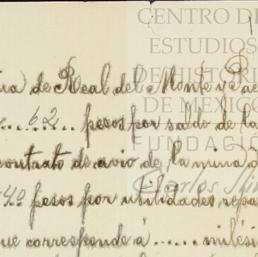 CENTRO DE
ESTUDIOS
DE HISTORIA
DE MÉXICO
FUNDACIÓN
Carlos Slim
de Real del Monte y Pac
62 pesos por saldo de la
contrato de avio de la mina d
40 pesos por utilidades repa
que corresponde á ...... milési